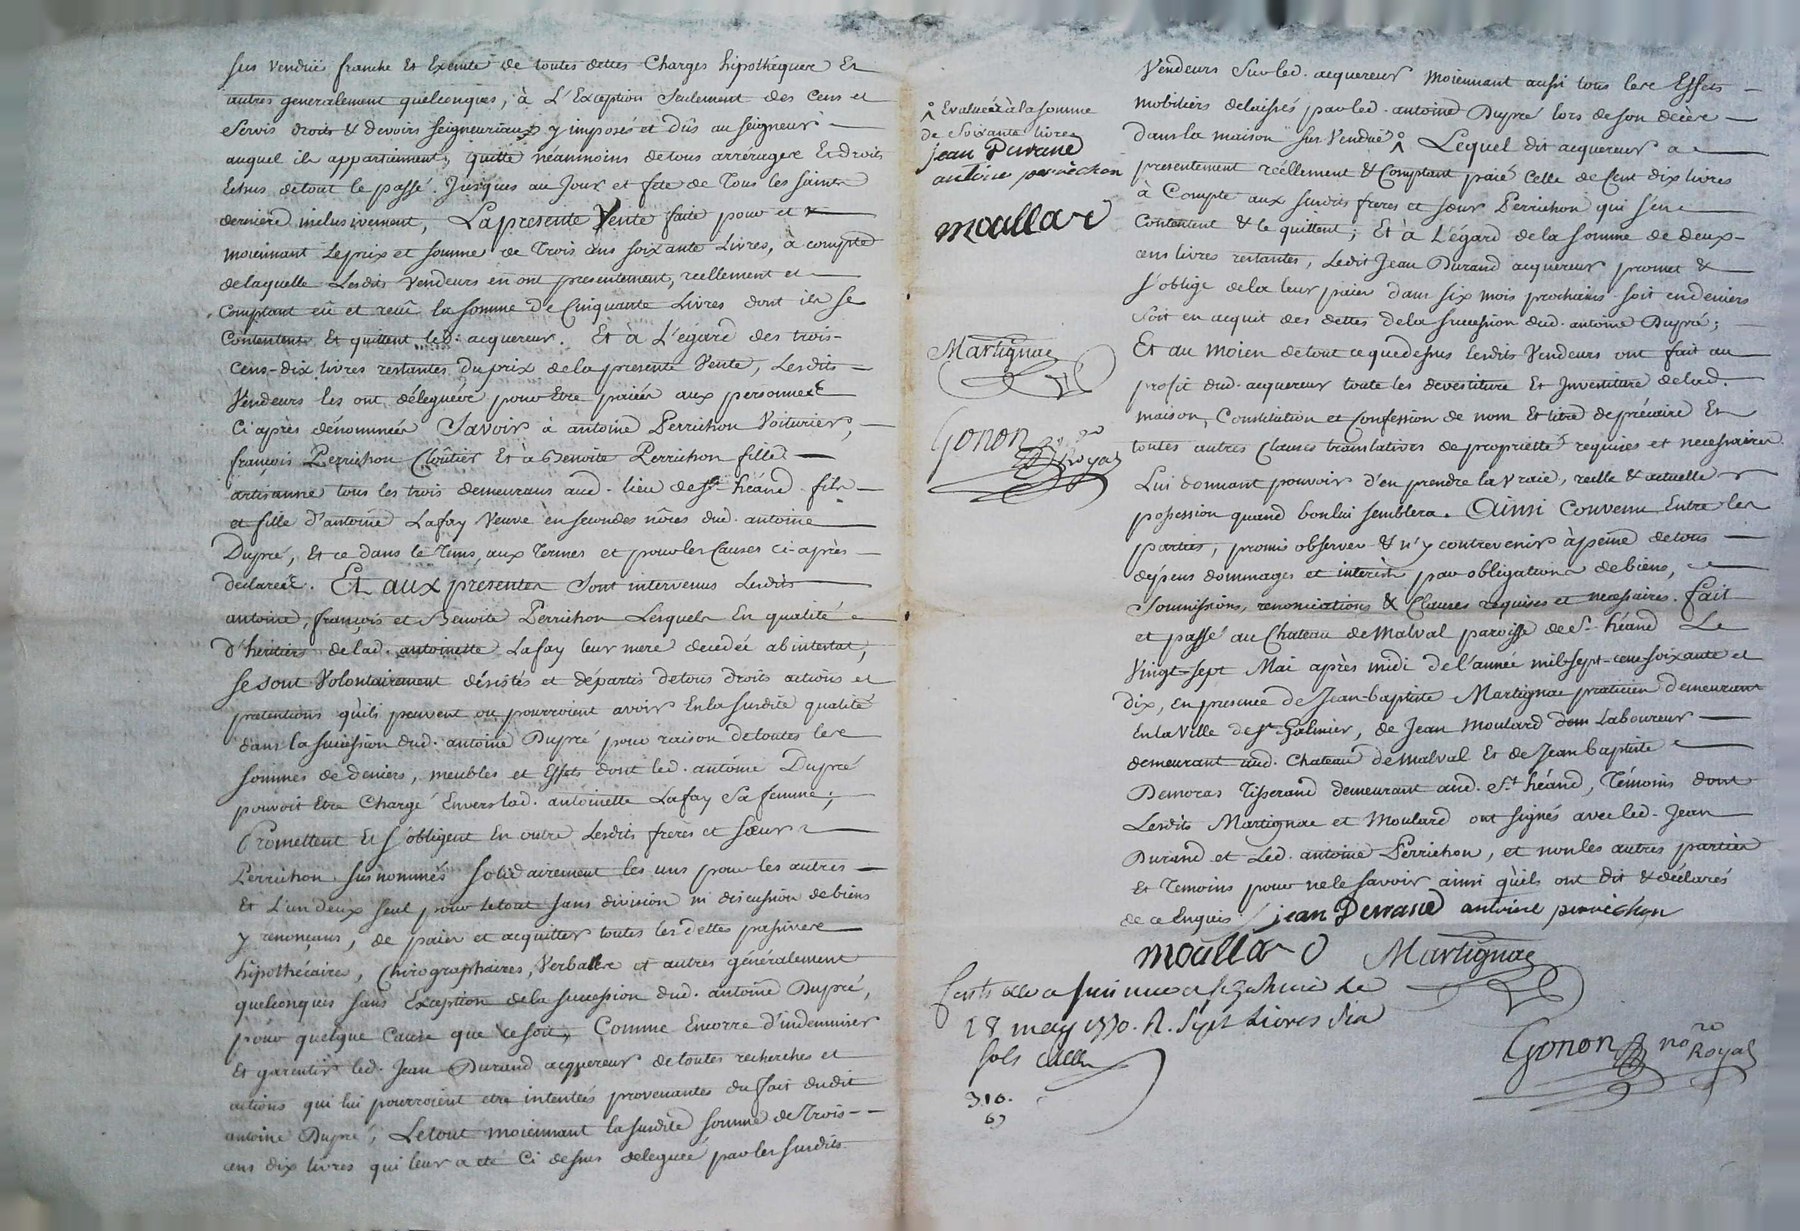 sus vendue franche et exemte de toutes dettes charges hipothéques et
autres generalement quelconques, à l'exception seulement des cens et
servis droits & devoirs seigneuriaux y imposés et dûs au seigneur
auquel ils appartiennent, quitte néanmoins de tous arrérages et droits
echus de tout le passé jusques au jour et fete de tous les saints
derniere inclusivement, La presente Vente faite pour et
moiennant le prix et somme de trois cens soixante livres, à compte
de laquelle lesdits vendeurs en ont presentement, reellement et
comptant eû et reçû la somme de cinquante livres dont ils se
contentent et quittent led. acquereur. Et à l'égard des trois-
cens-dix livres restantes du prix de la presente vente, lesdits
vendeurs les ont déleguées pour etre paiées aux personnes
ci après dénommées Savoir à antoine Perrichon voiturier,
françois Perrichon cloûtier et à Benoite Perrichon fille
artisanne tous les trois demeurans aud. lieu de St héand fils
et fille d'antoine Lafay veuve en secondes nôces dud. antoine
Dupré, et ce dans le tems, aux termes et pour les causes ci-après
declarées. Et aux presentes sont intervenus lesdits
antoine, françois et Benoite Perrichon lesquels en qualité
d'héritiers de lad. antoinette Lafay leur mere decedée abintestat,
se sont volontairement désistés et départis de tous droits actions et
pretentions qu'ils peuvent ou pourroient avoir en la susdite qualité
dans la succession dud. antoine Dupré pour raison de toutes les
sommes de deniers, meubles et effets dont led. antoine Dupré
pouvoit etre chargé envers lad. antoinette Lafay sa femme;
Promettent et s'obligent en outre lesdits freres et sœur
Perrichon susnommés solidairement les uns pour les autres
et l'un deux seul pour le tout sans division ni discussion de biens
y renonçans, de paier et acquitter toutes les dettes passives
hipothécaires, chirographaires, verballes et autres généralement
quelconques sans exception de la succession dud. antoine Dupré,
pour quelque cause que ce soit, comme encorre d'indemniser
et garentir led. Jean Durand acquereur de toutes recherches et
actions qui lui pourroient etre intentées provenantes du fait dudit
antoine Dupré; Le tout moiennant la susdite somme de trois-
cens dix livres qui leur a eté ci dessus deleguée par les susdits
Evaluées à la somme
de soixante livres
jean Durand
antoine perrichon
moullard
Martignac
Gonon no re Royal
vendeurs sur led. acquereur moiennant aussi tous les effets
mobiliers delaissés par led. antoine Dupré lors de son décès
dans la maison sus vendue Lequel dit acquereur a
presentement réellement & comptant paié celle de cent dix livres
à compte aux susdits freres et sœur Perrichon qui s'en
contentent & le quittent; Et à l'égard de la somme de deux-
cens livres restantes, ledit Jean Durand acquereur promet &
s'oblige de la leur paier dans six mois prochains soit en deniers
soit en acquit des dettes de la succession dud. antoine Dupré;
Et au moien de tout ce que dessus lesdits vendeurs ont fait au
profit dud. acquereur toute les devestiture et investiture de lad.
maison, constitution et confession de nom et titre de précaire et
toutes autres clauses translatives de propriette requises et necessaires
Lui donnant pouvoir d'en prendre la vraie, reelle & actuelle
possession quand bon lui semblera. Ainsi convenu entre les
parties, promis observer & n'y contrevenir à peine de tous
dépens dommages et interêts par obligations de biens,
soumissions, renonciations & clauses requises et necessaires. fait
et passé au Chateau de Malval paroisse de St héand Le
vingt-sept Mai après midi de l'année mil-sept-cens-soixante et
dix, en presence de Jean-baptiste Martignac praticien demeurant
en la ville de St Galmier, de Jean Moulard dom Laboureur
demeurant aud. Chateau de Malval et de Jean baptiste
Demoras Tisserand demeurant aud. St héand, Témoins dont
lesdits Martignac et Moulard ont signés avec led. Jean
Durand et led. antoine Perrichon, et non les autres parties
et temoins pour ne le savoir ainsi qu'ils ont dit & déclarés
de ce enquis jean Durand antoine perrichon
moullard Martignac
28 may 1770. R. Sept livres six
sols
Gonon no re Royal
310.